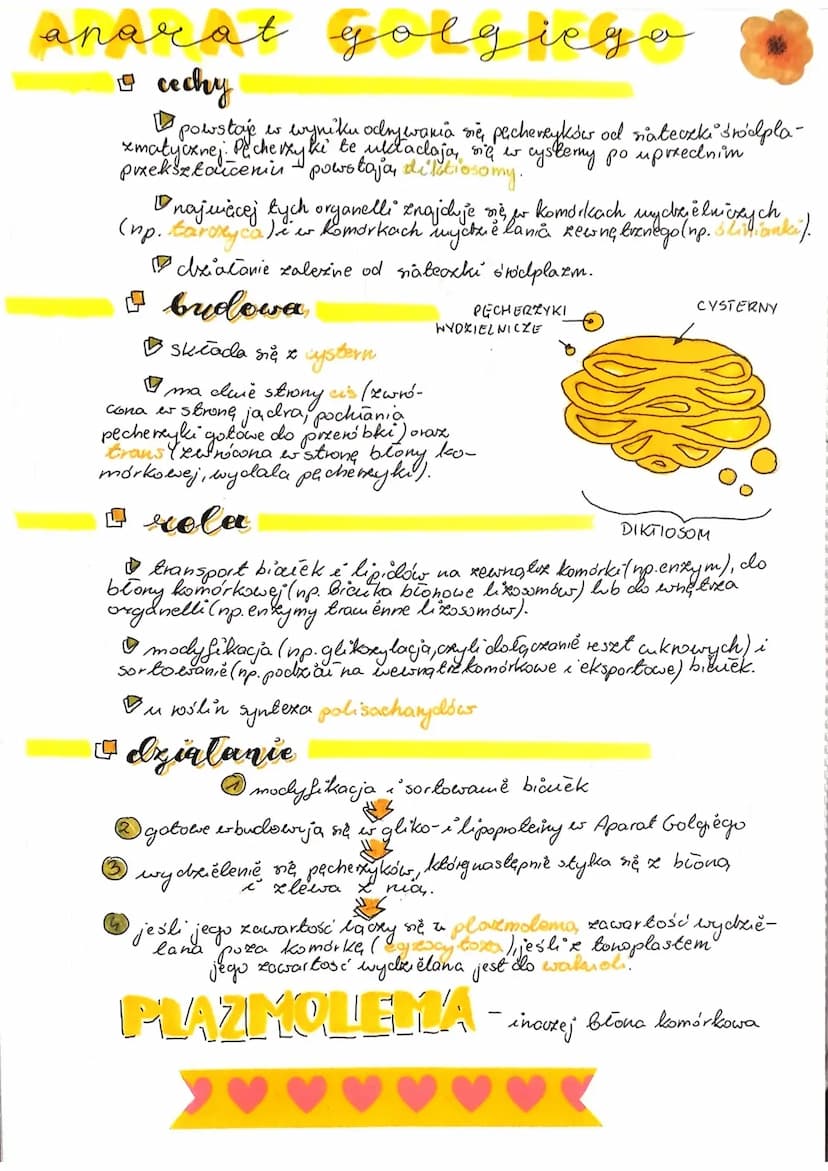 aparat golgiego
cechy
powstaje w wyniku odrywania się pęcherzyków od siateczki śródpla-
zmatycznej. Pęcherzyki te układają się w cysterny po uprzednim
przekształceniu - powstają diktiosomy.
najwięcej tych organelli znajduje się w komórkach wydzielniczych
(np. tarczyca) i w komórkach wydzielania zewnętrznego (np. ślinianki).
działanie zależne od siateczki śródplazm.
budowa
PĘCHERZYKI
WYDZIELNICZE
CYSTERNY
składa się z cystern
ma dwie strony cis (zwró-
cona w stronę jądra, pochłania
pęcherzyki gotowe do przeróbki) oraz
trans (zwrócona w stronę błony ko-
mórkowej, wydala pęcherzyki).
DIKTIOSOM
rola
transport białek i lipidów na zewnątrz komórki (np. enzym), do
błony komórkowej (np. białka błonowe lizosomów) lub do wnętrza
organelli (np. enzymy trawienne lizosomów).
modyfikacja (np. glikozylacja, czyli dołączanie reszt cukrowych) i
sortowanie (np. podział na wewnątrzkomórkowe i eksportowe) białek.
u roślin synteza polisacharydów
działanie
1 modyfikacja i sortowanie białek
2 gotowe wbudowują się w gliko- i lipoproteiny w Aparat Golgiego
3 wydzielenie się pęcherzyków, który następnie styka się z błoną
i zlewa z nią.
4 jeśli jego zawartość łączy się z plazmolemą zawartość wydzie-
lana poza komórkę (egzocytoza), jeśli z tonoplastem
jego zawartość wydzielana jest do wakuoli.
PLAZMOLEMA - inaczej błona komórkowa